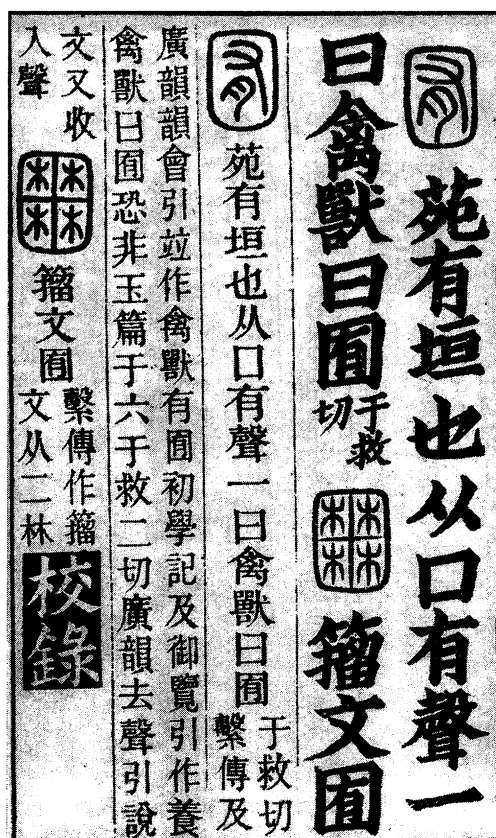 囿苑有垣也从囗有聲一
曰禽獸曰囿
于救
切
籀文囿
囿苑有垣也从囗有聲一曰禽獸曰囿
于救切
繫傳及
廣韻韻會引竝作禽獸有囿初學記及御覽引作養
禽獸曰囿恐非玉篇于六于救二切廣韻去聲引說
文又收
入聲
籀文囿
繫傳作籀
文从二林
校錄